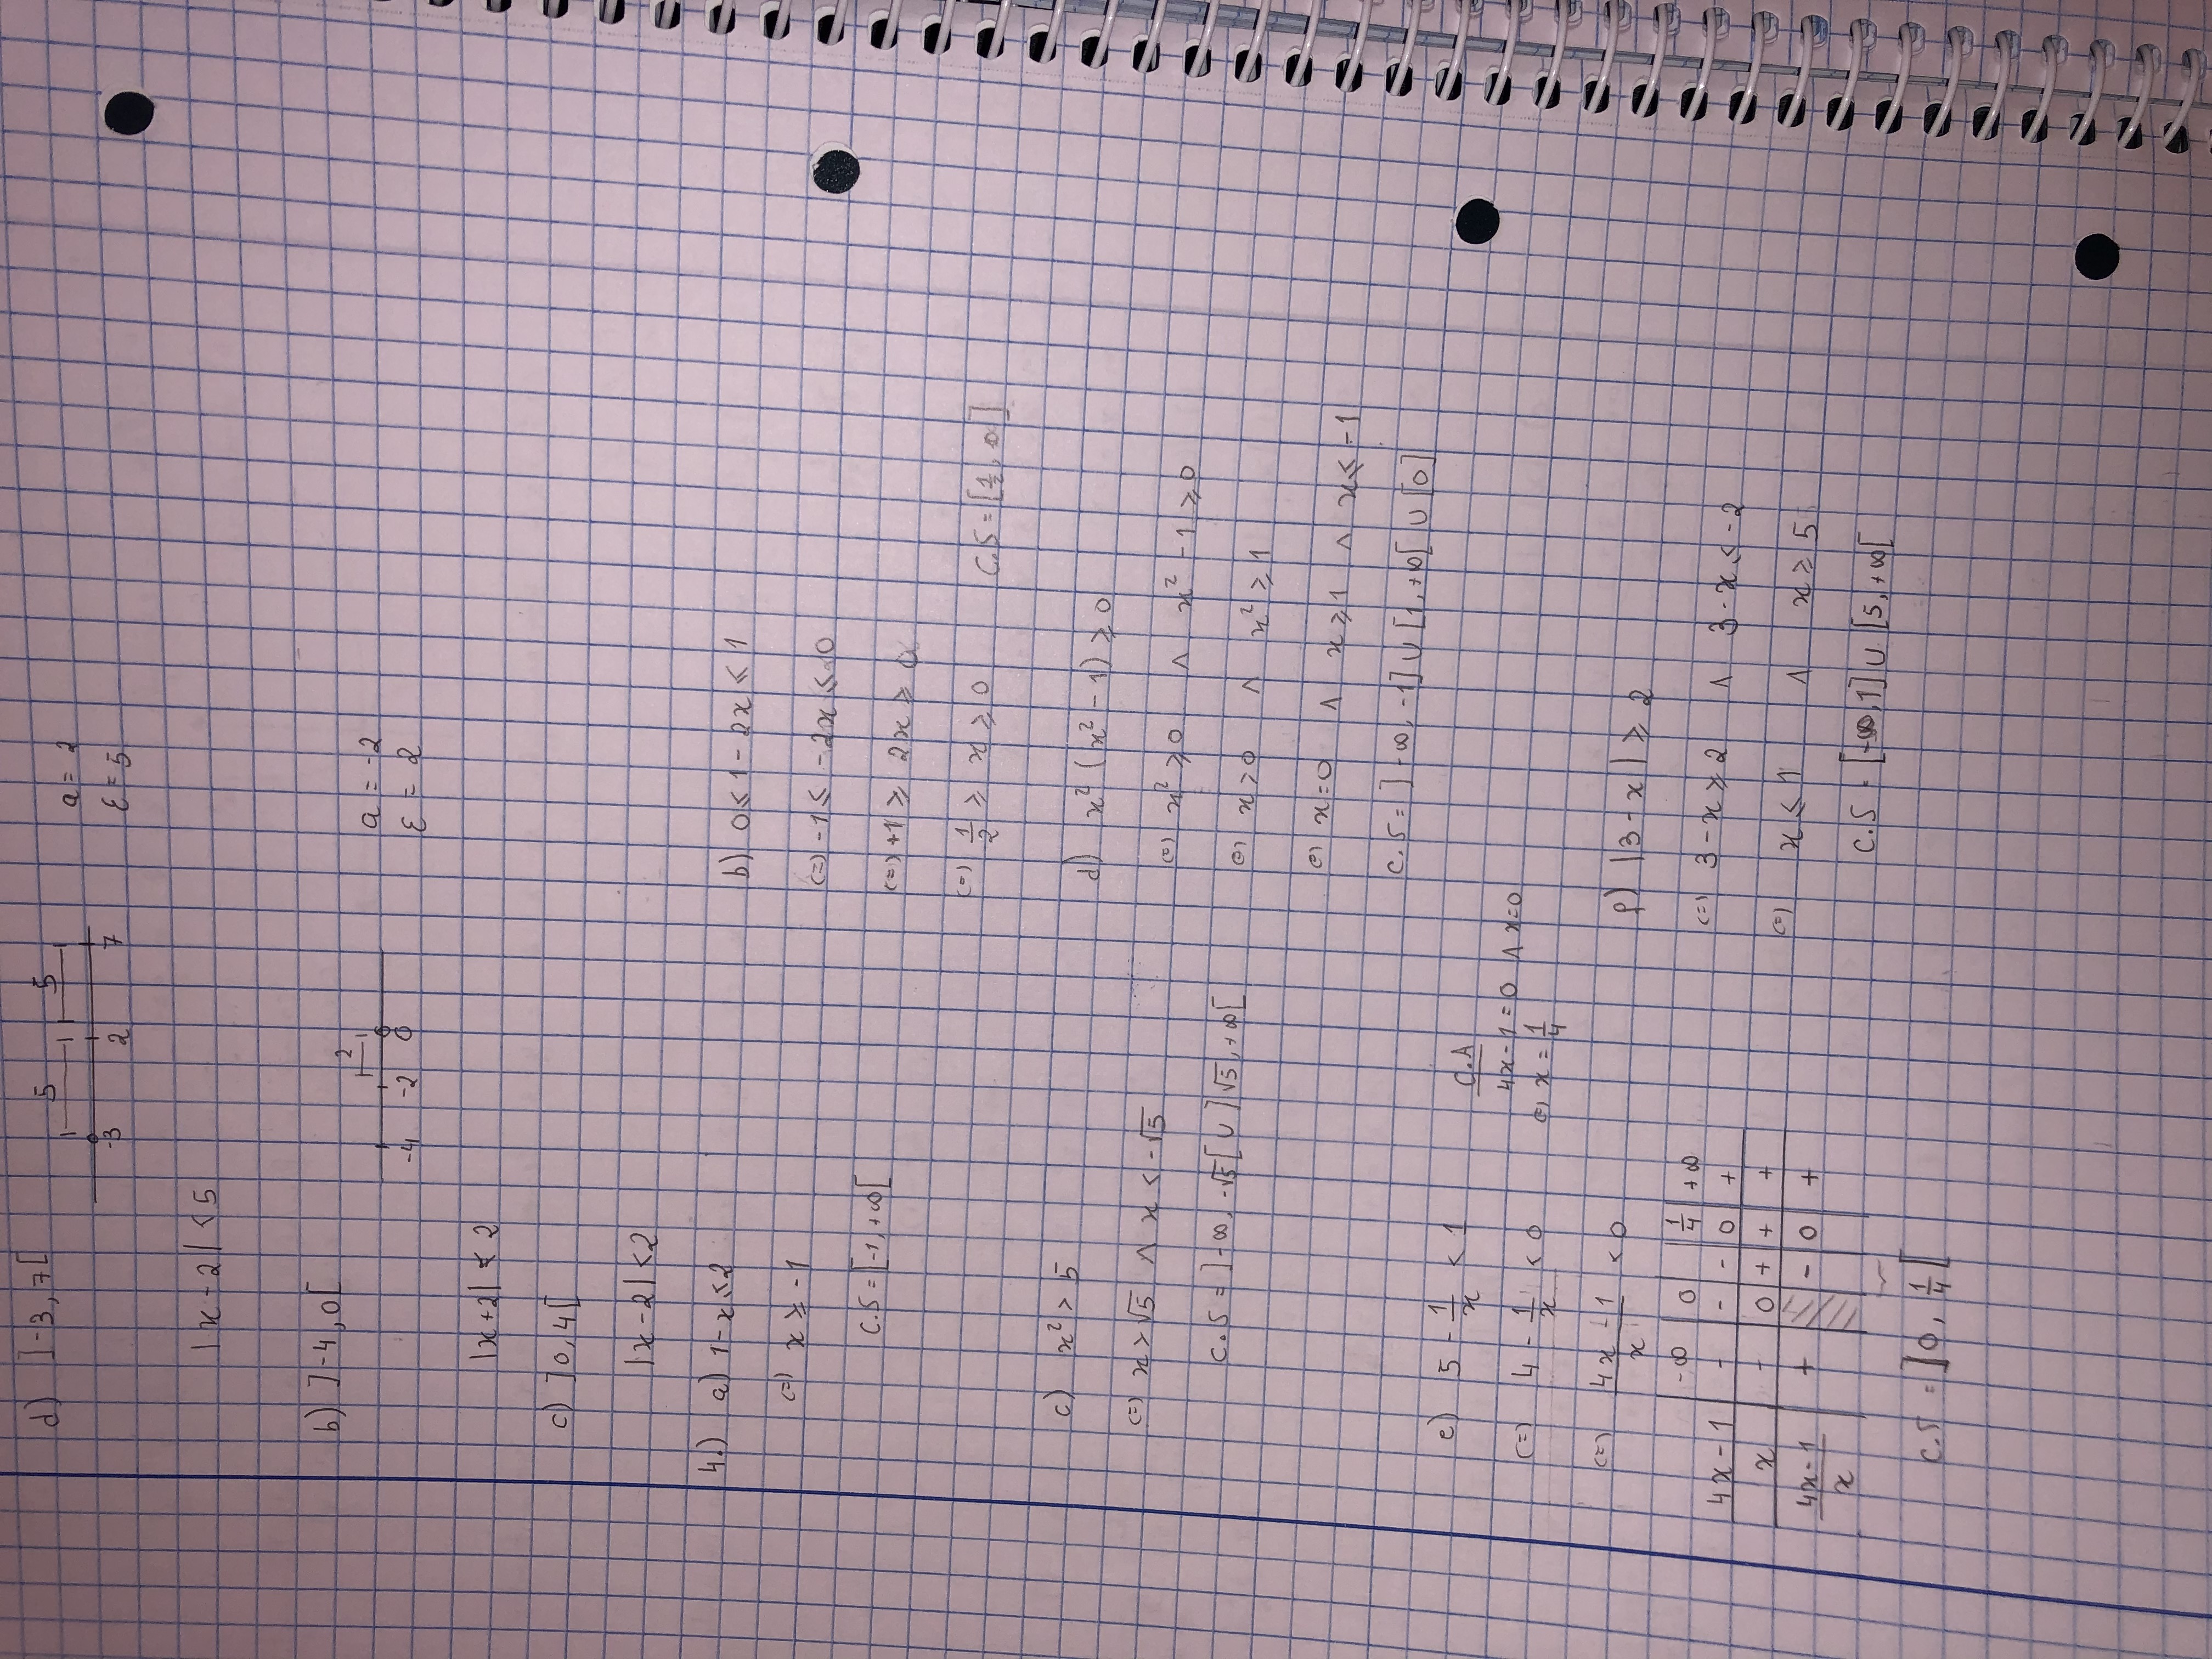 d) ]-3, 7[
5 5
-3 2 7
a = 2
ε = 5
|x - 2| < 5
b) ]-4, 0[
2
-4 -2 0
a = -2
ε = 2
|x+2| < 2
c) ]0, 4[
|x - 2| < 2
4.) a) 1 - x ≤ 2
(=) x ≥ -1
C.S = [-1, +∞[
b) 0 ≤ 1 - 2x ≤ 1
(=) -1 ≤ -2x ≤ 0
(=) +1 ≥ 2x ≥ 0
(=) 1/2 ≥ x ≥ 0 C.S = [1/2, ∞]
c) x² > 5
(=) x > √5 ∧ x < -√5
C.S = ]-∞, -√5[ ∪ ]√5, +∞[
d) x² (x² - 1) ≥ 0
(=) x² ≥ 0 ∧ x² - 1 ≥ 0
(=) x > 0 ∧ x² ≥ 1
(=) x = 0 ∧ x ≥ 1 ∧ x ≤ -1
C.S = ]-∞, -1] ∪ [1, +∞[ ∪ [0]
e) 5 - 1/x < 1
(=) 4 - 1/x < 0
(=) (4x - 1)/x < 0
C.A
4x - 1 = 0 ∧ x = 0
(=) x = 1/4
-∞ 0 1/4 +∞
4x - 1 - - - 0 +
x - 0 + + +
(4x-1)/x + - 0 +
C.S = ]0, 1/4[
f) |3 - x| ≥ 2
(=) 3 - x ≥ 2 ∧ 3 - x ≤ -2
(=) x ≤ 1 ∧ x ≥ 5
C.S = [-∞, 1] ∪ [5, +∞[